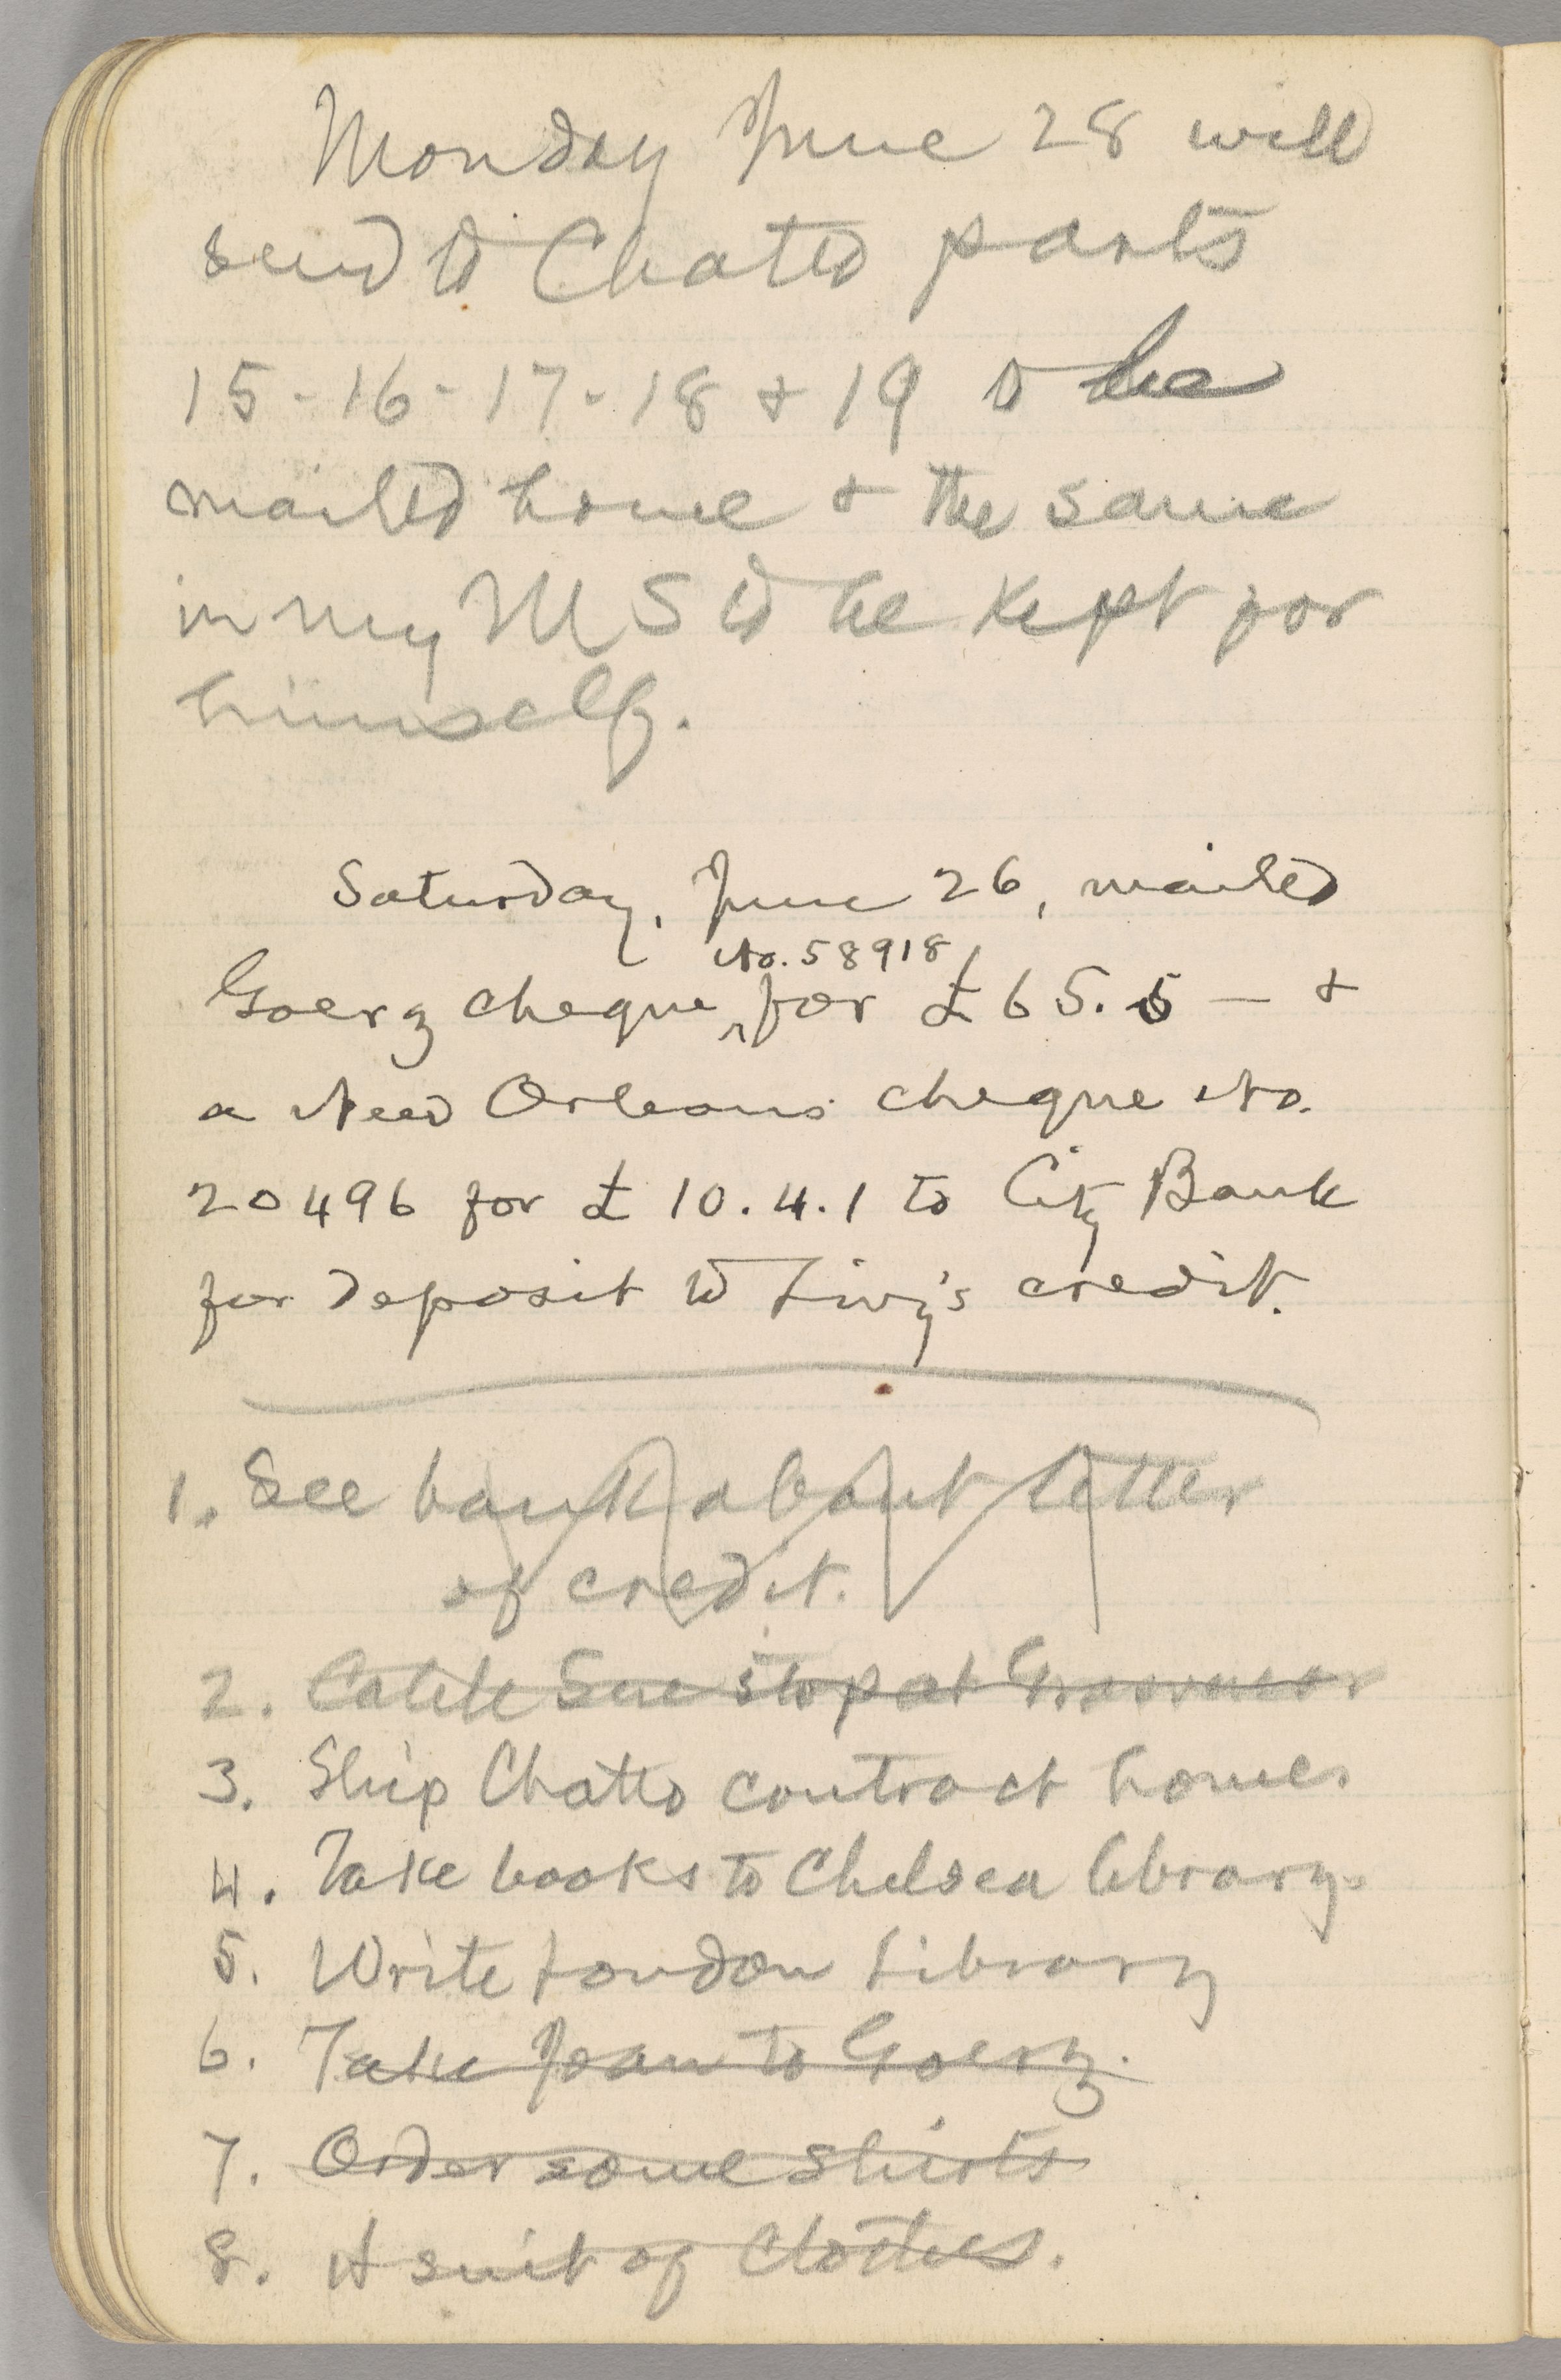 Monday June 28 will
send to Chatto parts
15-16-17-18 & 19 to be
mailed home & the same
in my MS to be kept for
himself.
Saturday, June 26, mailed
No. 58918
Goerz cheque ‸ for £65.5 — &
a New Orleans cheque No.
20496 for £10.4.1 to City Bank
for deposit to Livy's credit.
1. See bank about letter
of credit.
2. Sue stop at Grosvenor
3. Ship Chatto contract home.
4. Take books to Chelsea library.
5. Write London Library
6. Take Jean to Goerz.
7. Order some shirts
8. A suit of clothes.